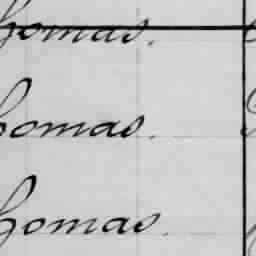 homas.
homas.
homas.